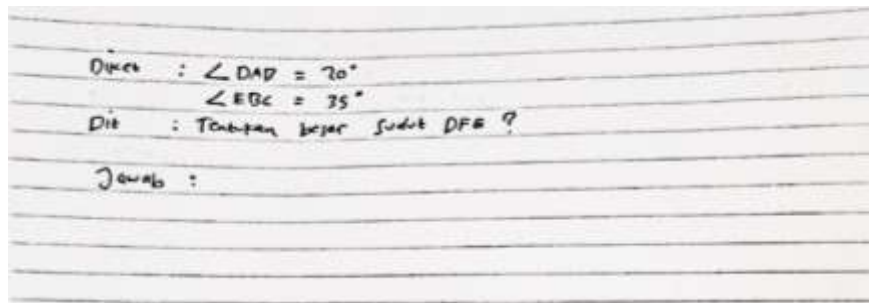 Diket : ∠ DAD = 20°
∠ EBC = 35°
Dit : Tentukan besar sudut DFE ?
Jawab :